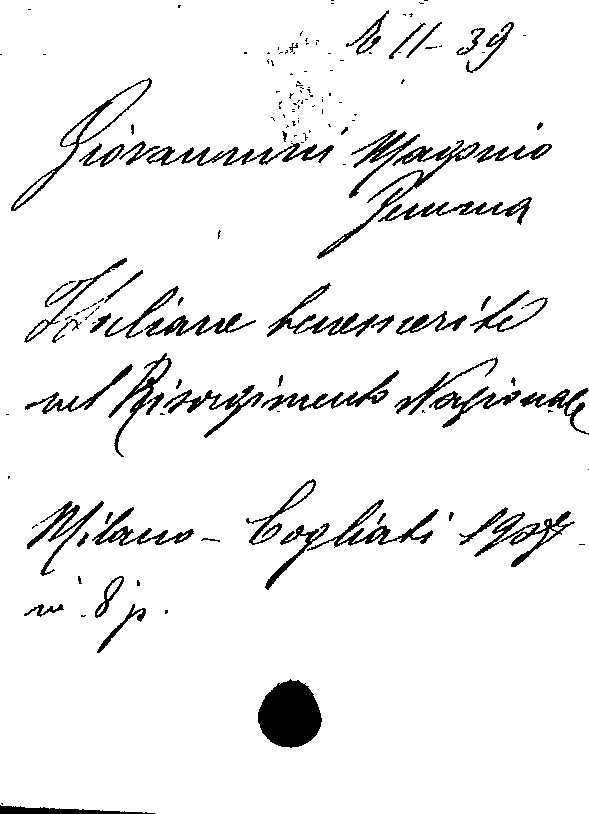 II-39
Giovannini Magonio
Gemma
Italiane benemerite
nel Risorgimento Nazionale
Milano - Cogliati 1907
in 8 p.